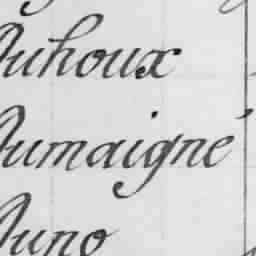 Duhoux
Dumaigné
Duno